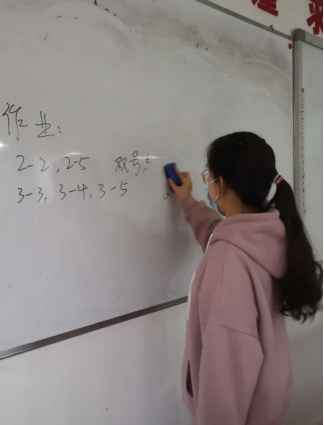 作业:
2-2, 2-5 双号:
3-3, 3-4, 3-5